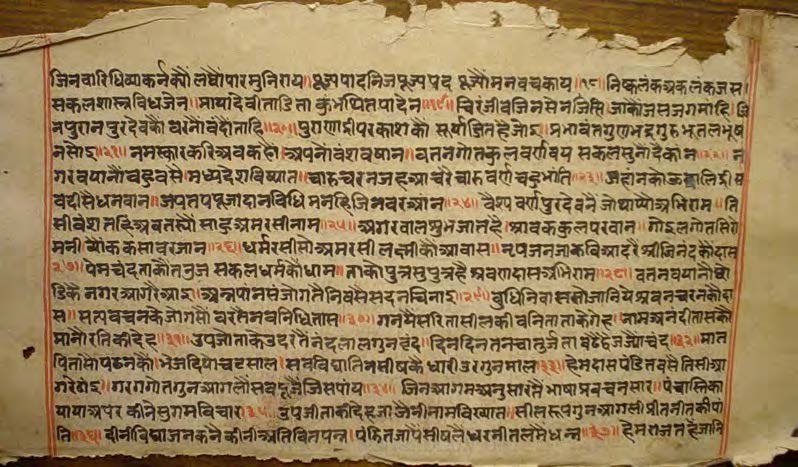 जिनवारिधिव्याकर्नकौं लघौंपारमुनिराय॥पूज्यपादनिजपूज्यपद पूजौंमनवचकाय॥१८॥निष्कलंकअकलंकजस।
सकलशास्त्रविधजेन॥मायादेवीताडिता कुंभथितपादेन॥१९॥चिरंजीवजिनसेनजिसि जाकोजसजगमाहि।जि
नपुरानपुरदेवकौ वरनौवंदौताहि॥२०॥पुराणादीपरकाशकौं सूर्याजितहैजोइ॥प्रभावंतगुणभद्रगुरु भूतलभूष
नसोइ॥२१॥नमस्कारकरिअवकहौ।अपनौवंशवषान॥वतनगोतकुलवर्णवय सकलसुनौदैकान॥२२॥न
गरवयानौवहुवसै मध्यदेशविष्यात॥चारुचरनजहआचरै चारवर्णचहुभांति॥२३॥जहांनकोऊदालिद्रीस
वदीसैधनवान॥जपतपपूजादानविधि मनहिजिनवरआन॥२४॥वैश्यवर्णपुरदेवनै जोथाप्योअभिराम॥ति
सीवंशतहिअवतस्यौ साहुअमरसीनाम॥२५॥अगरवालशुभजातहै।श्रावककुलपरवान॥गोइलगोतसिरो
मनी ब्योंककसावरजान॥२६॥धर्मरसीसोअमरसी लक्ष्मीकौआवास॥नृपजनजाकविआदरै श्रीजिनंदकौदास
२७॥पेमचंदताकौतनुज सकलधर्मकौधाम॥ताकोपुत्रसुपुत्रहै श्रवणदासअभिराम॥२८॥वतनवयानौछो
डिकै नगरआगरेआइ॥अन्नपानसंजोगतैनिवसैसदनचिनाइ॥२९॥बुधिनिवाससोजानिये श्रवनचरनकौदा
स॥सत्यवचनकेजोगसौं वरतैनवनिधितास॥३०॥गनमैसरितासीलकी वनिताताकेगेह॥नामअनंदीतासकौ
मानौरतिकीदेह॥३१॥उपजौताकेउदरतै नंदलालगुनवृंद॥दिनदिनतनचातुर्जता बढैदुजज्यौंचंद॥३२॥मात
पितासोपठनकौ।भेजदियोचटसाल॥सवविद्यातिनसीषकै धारीउरगुनमाल॥३३॥हेमराजपंडितवसै तिसीआ
गरेठाइ॥गरगगोतगुनआगलौ सवपूजैजिसपाय॥३४॥ जिनआगमअनुसारतैभाषाप्रवचनसार॥पंचास्तिका
यायाअपर कीनेसुगमविचार॥३५॥उपजीताकैदेहजा जैनीनामविख्यात॥सीलरूपगुनआगली प्रीतनीतकीपां
ति॥३६॥दीनीविद्याजनकनै कीनीअतिवितपन्न॥पंडितजापैसीषलै धरनीतलमैधन्न॥३७॥हेमराजतहजानि